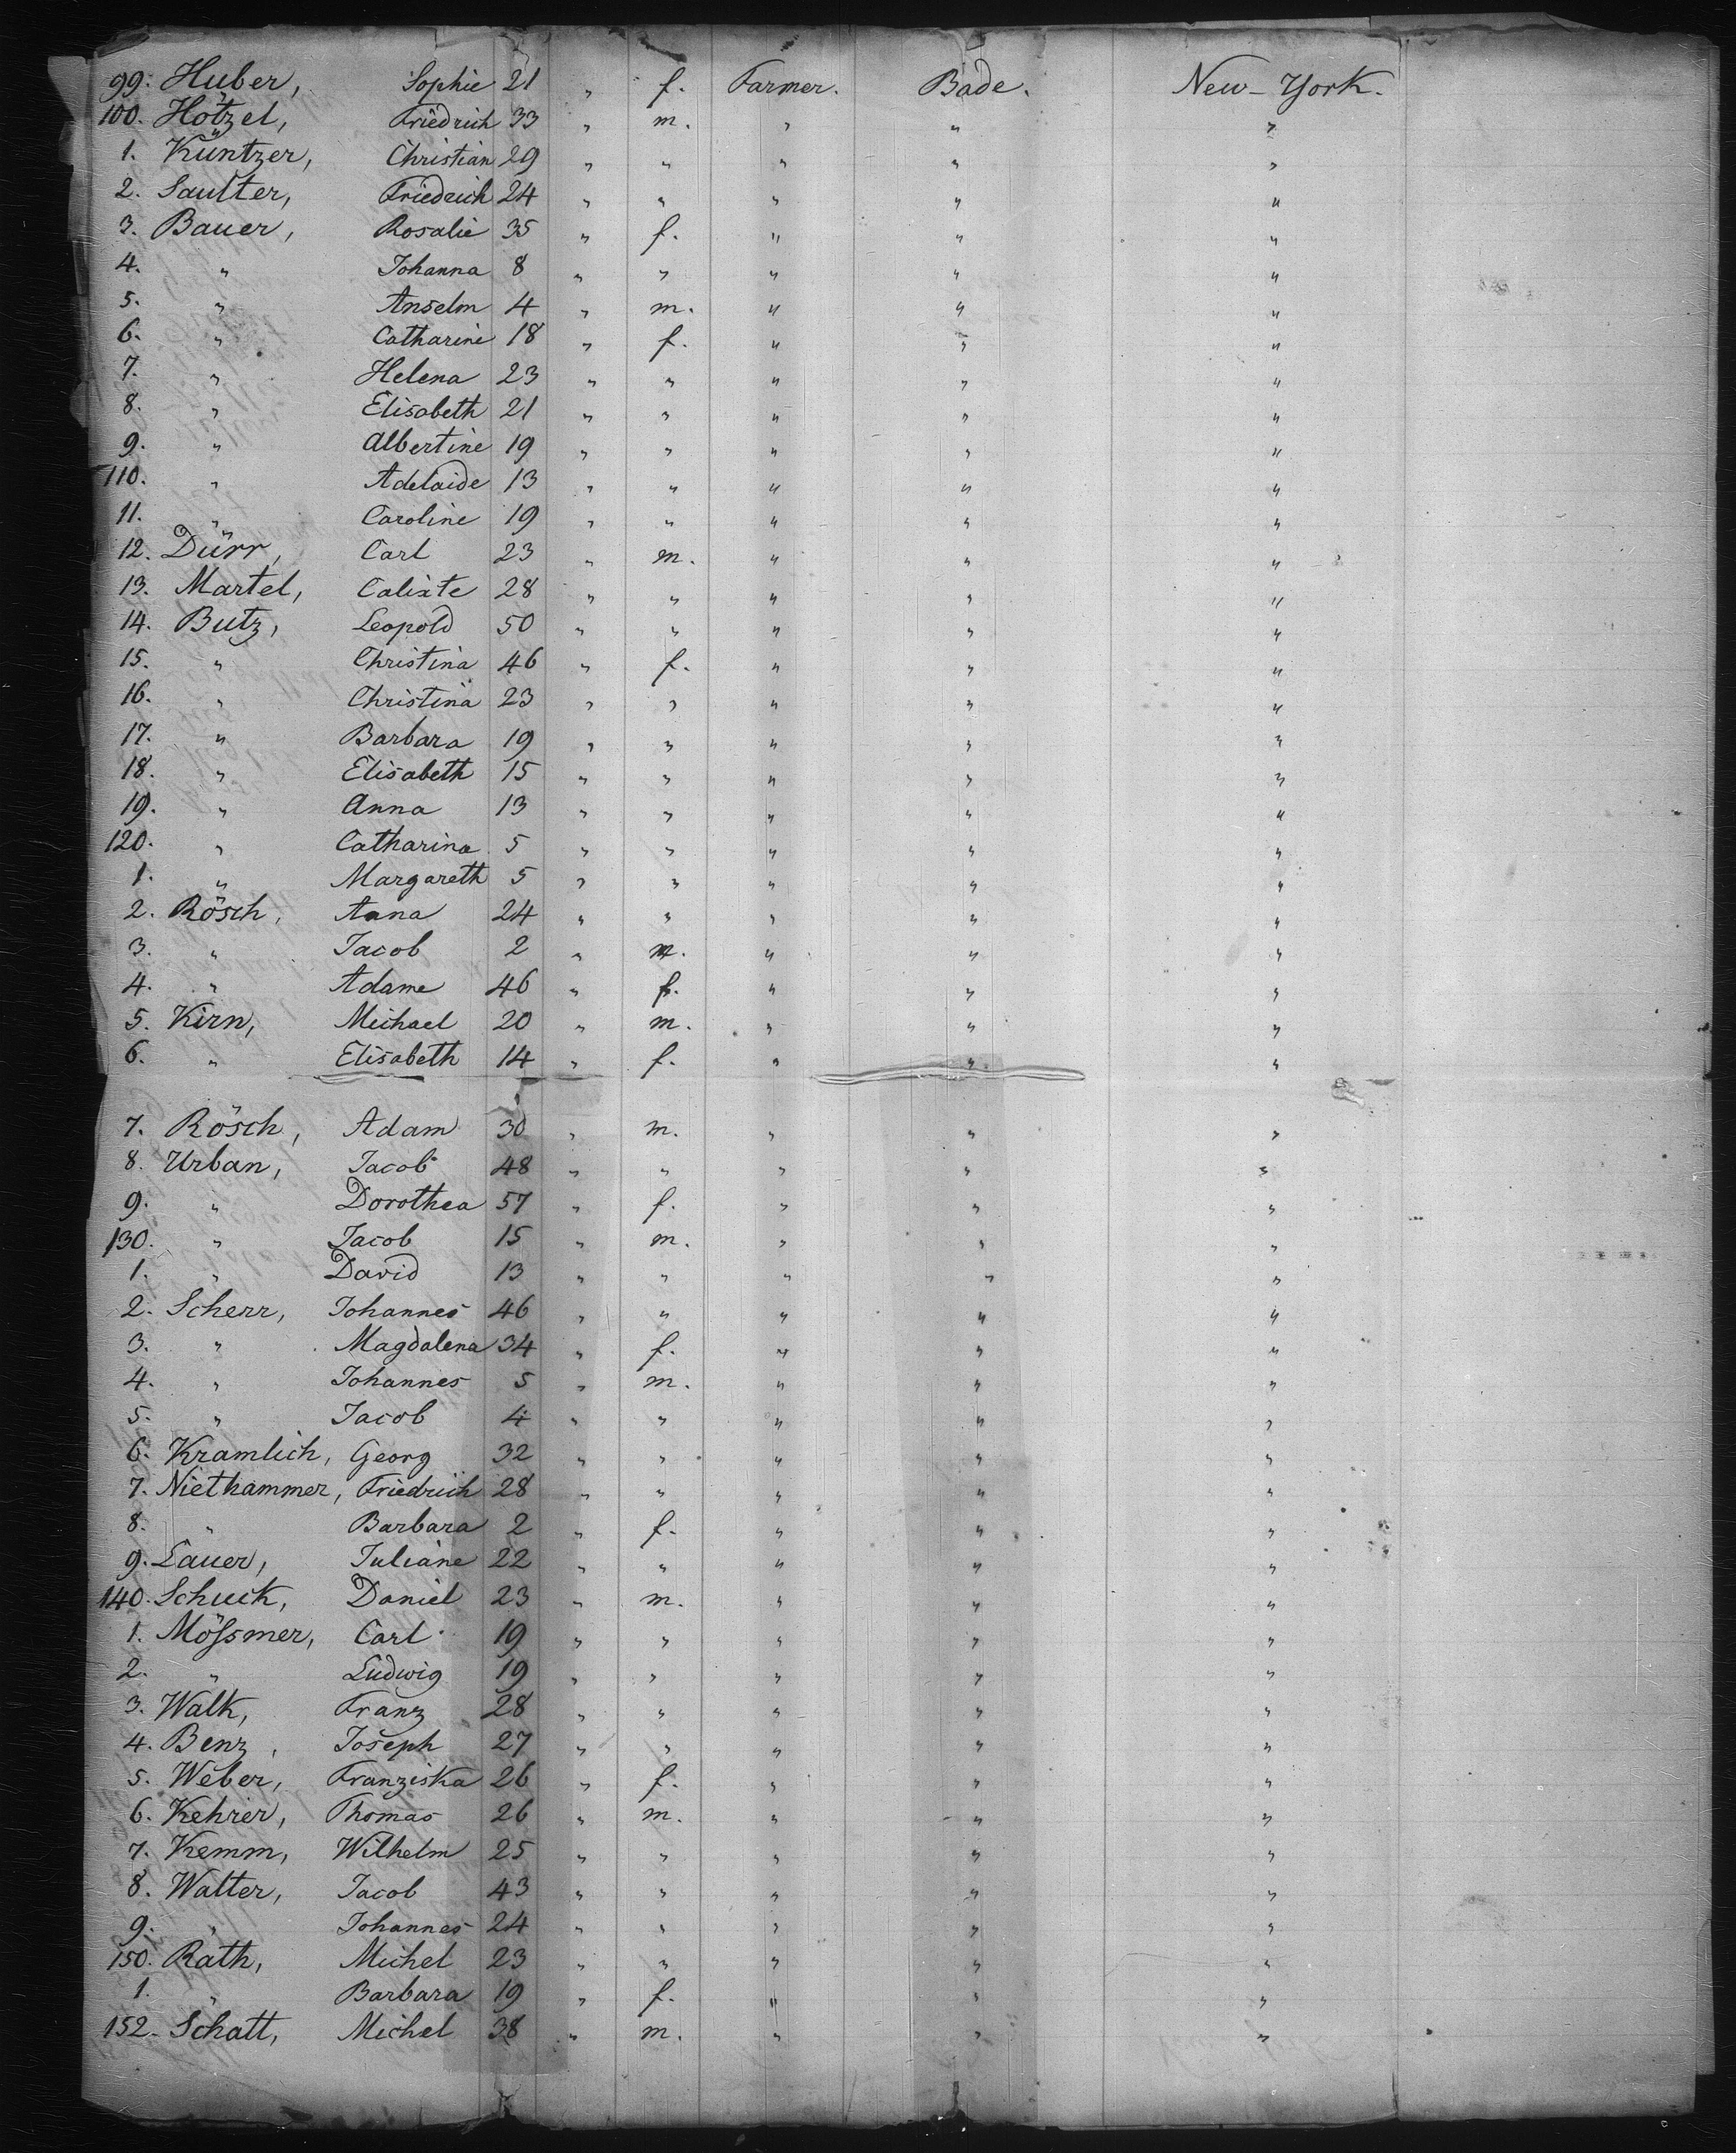 99. Huber, Sophie 21 " f. Farmer. Bade. New-York.
100. Hötzel, Friedrich 33 " m. " " "
1. Küntzer, Christian 29 " " " " "
2. Saulter, Friedrich 24 " " " " "
3. Bauer, Rosalie 35 " f. " " "
4. " Johanna 8 " " " " "
5. " Anselm 4 " m. " " "
6. " Catharine 18 " f. " " "
7. " Helena 23 " " " " "
8. " Elisabeth 21 " " " " "
9. " Albertine 19 " " " " "
110. " Adelaide 13 " " " " "
11. " Caroline 19 " " " " "
12. Dürr, Carl 23 " m. " " "
13. Martel, Calixte 28 " " " " "
14. Butz, Leopold 50 " " " " "
15. " Christina 46 " f. " " "
16. " Christina 23 " " " " "
17. " Barbara 19 " " " " "
18. " Elisabeth 15 " " " " "
19. " Anna 13 " " " " "
120. " Catharina 5 " " " " "
1. " Margareth 5 " " " " "
2. Rösch, Anna 24 " " " " "
3. " Jacob 2 " m. " " "
4. " Adame 46 " f. " " "
5. Kirn, Michael 20 " m. " " "
6. " Elisabeth 14 " f. " " "
7. Rösch, Adam 30 " m. " " "
8. Urban, Jacob 48 " " " " "
9. " Dorothea 57 " f. " " "
130. " Jacob 15 " m. " " "
1. " David 13 " " " " "
2. Scherr, Johannes 46 " " " " "
3. " Magdalena 34 " f. " " "
4. " Johannes 5 " m. " " "
5. " Jacob 4 " " " " "
6. Kramlich, Georg 32 " " " " "
7. Niethammer, Friedrich 28 " " " " "
8. " Barbara 2 " f. " " "
9. Lauer, Juliane 22 " " " " "
140. Schuck, Daniel 23 " m. " " "
1. Mößmer, Carl 19 " " " " "
2. " Ludwig 19 " " " " "
3. Walk, Franz 28 " " " " "
4. Benz, Joseph 27 " " " " "
5. Weber, Franziska 26 " f. " " "
6. Kehrer, Thomas 26 " m. " " "
7. Kemm, Wilhelm 25 " " " " "
8. Walter, Jacob 43 " " " " "
9. " Johannes 24 " " " " "
150. Rath, Michel 23 " " " " "
1. " Barbara 19 " f. " " "
152. Schatt, Michel 38 " m. " " "